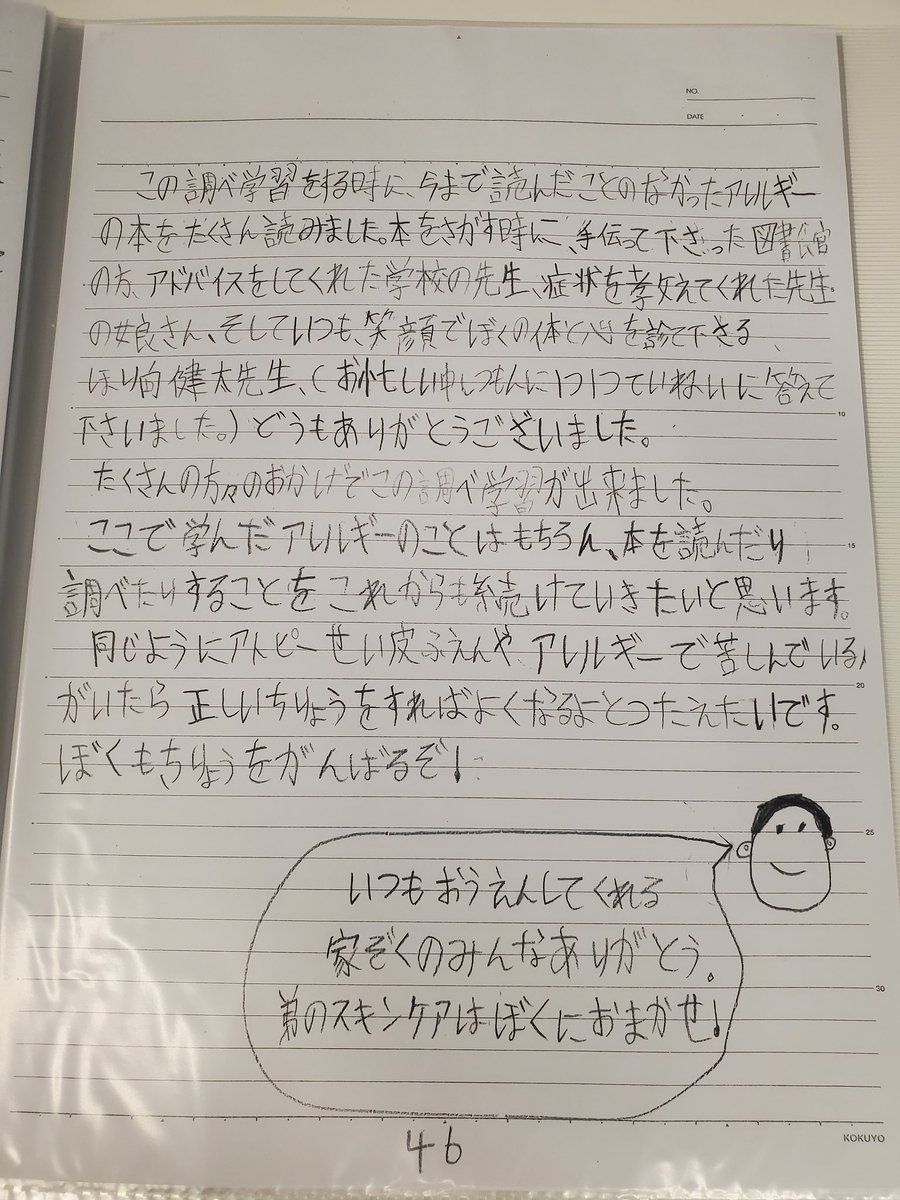 NO.
DATE
この調べ学習をする時に、今まで読んだことのなかったアレルギー
の本をたくさん読みました。本をさがす時に、手伝って下さった図書館
の方、アドバイスをしてくれた学校の先生、症状を教えてくれた先生
の娘さん、そしていつも、笑顔でぼくの体と心を診て下さる
ほり向健太先生、(お忙しい中しつもんに1つ1つていねいに答えて
下さいました。)どうもありがとうございました。
たくさんの方々のおかげでこの調べ学習が出来ました。
ここで学んだアレルギーのことはもちろん、本を読んだり
調べたりすることをこれからも続けていきたいと思います。
同じようにアトピーせい皮ふえんやアレルギーで苦しんでいる人
がいたら正しいちりょうをすればよくなるよとつたえたいです。
ぼくもちりょうをがんばるぞ!
いつもおうえんしてくれる
家ぞくのみんなありがとう。
弟のスキンケアはぼくにおまかせ!
10
15
20
25
30
46
KOKUYO